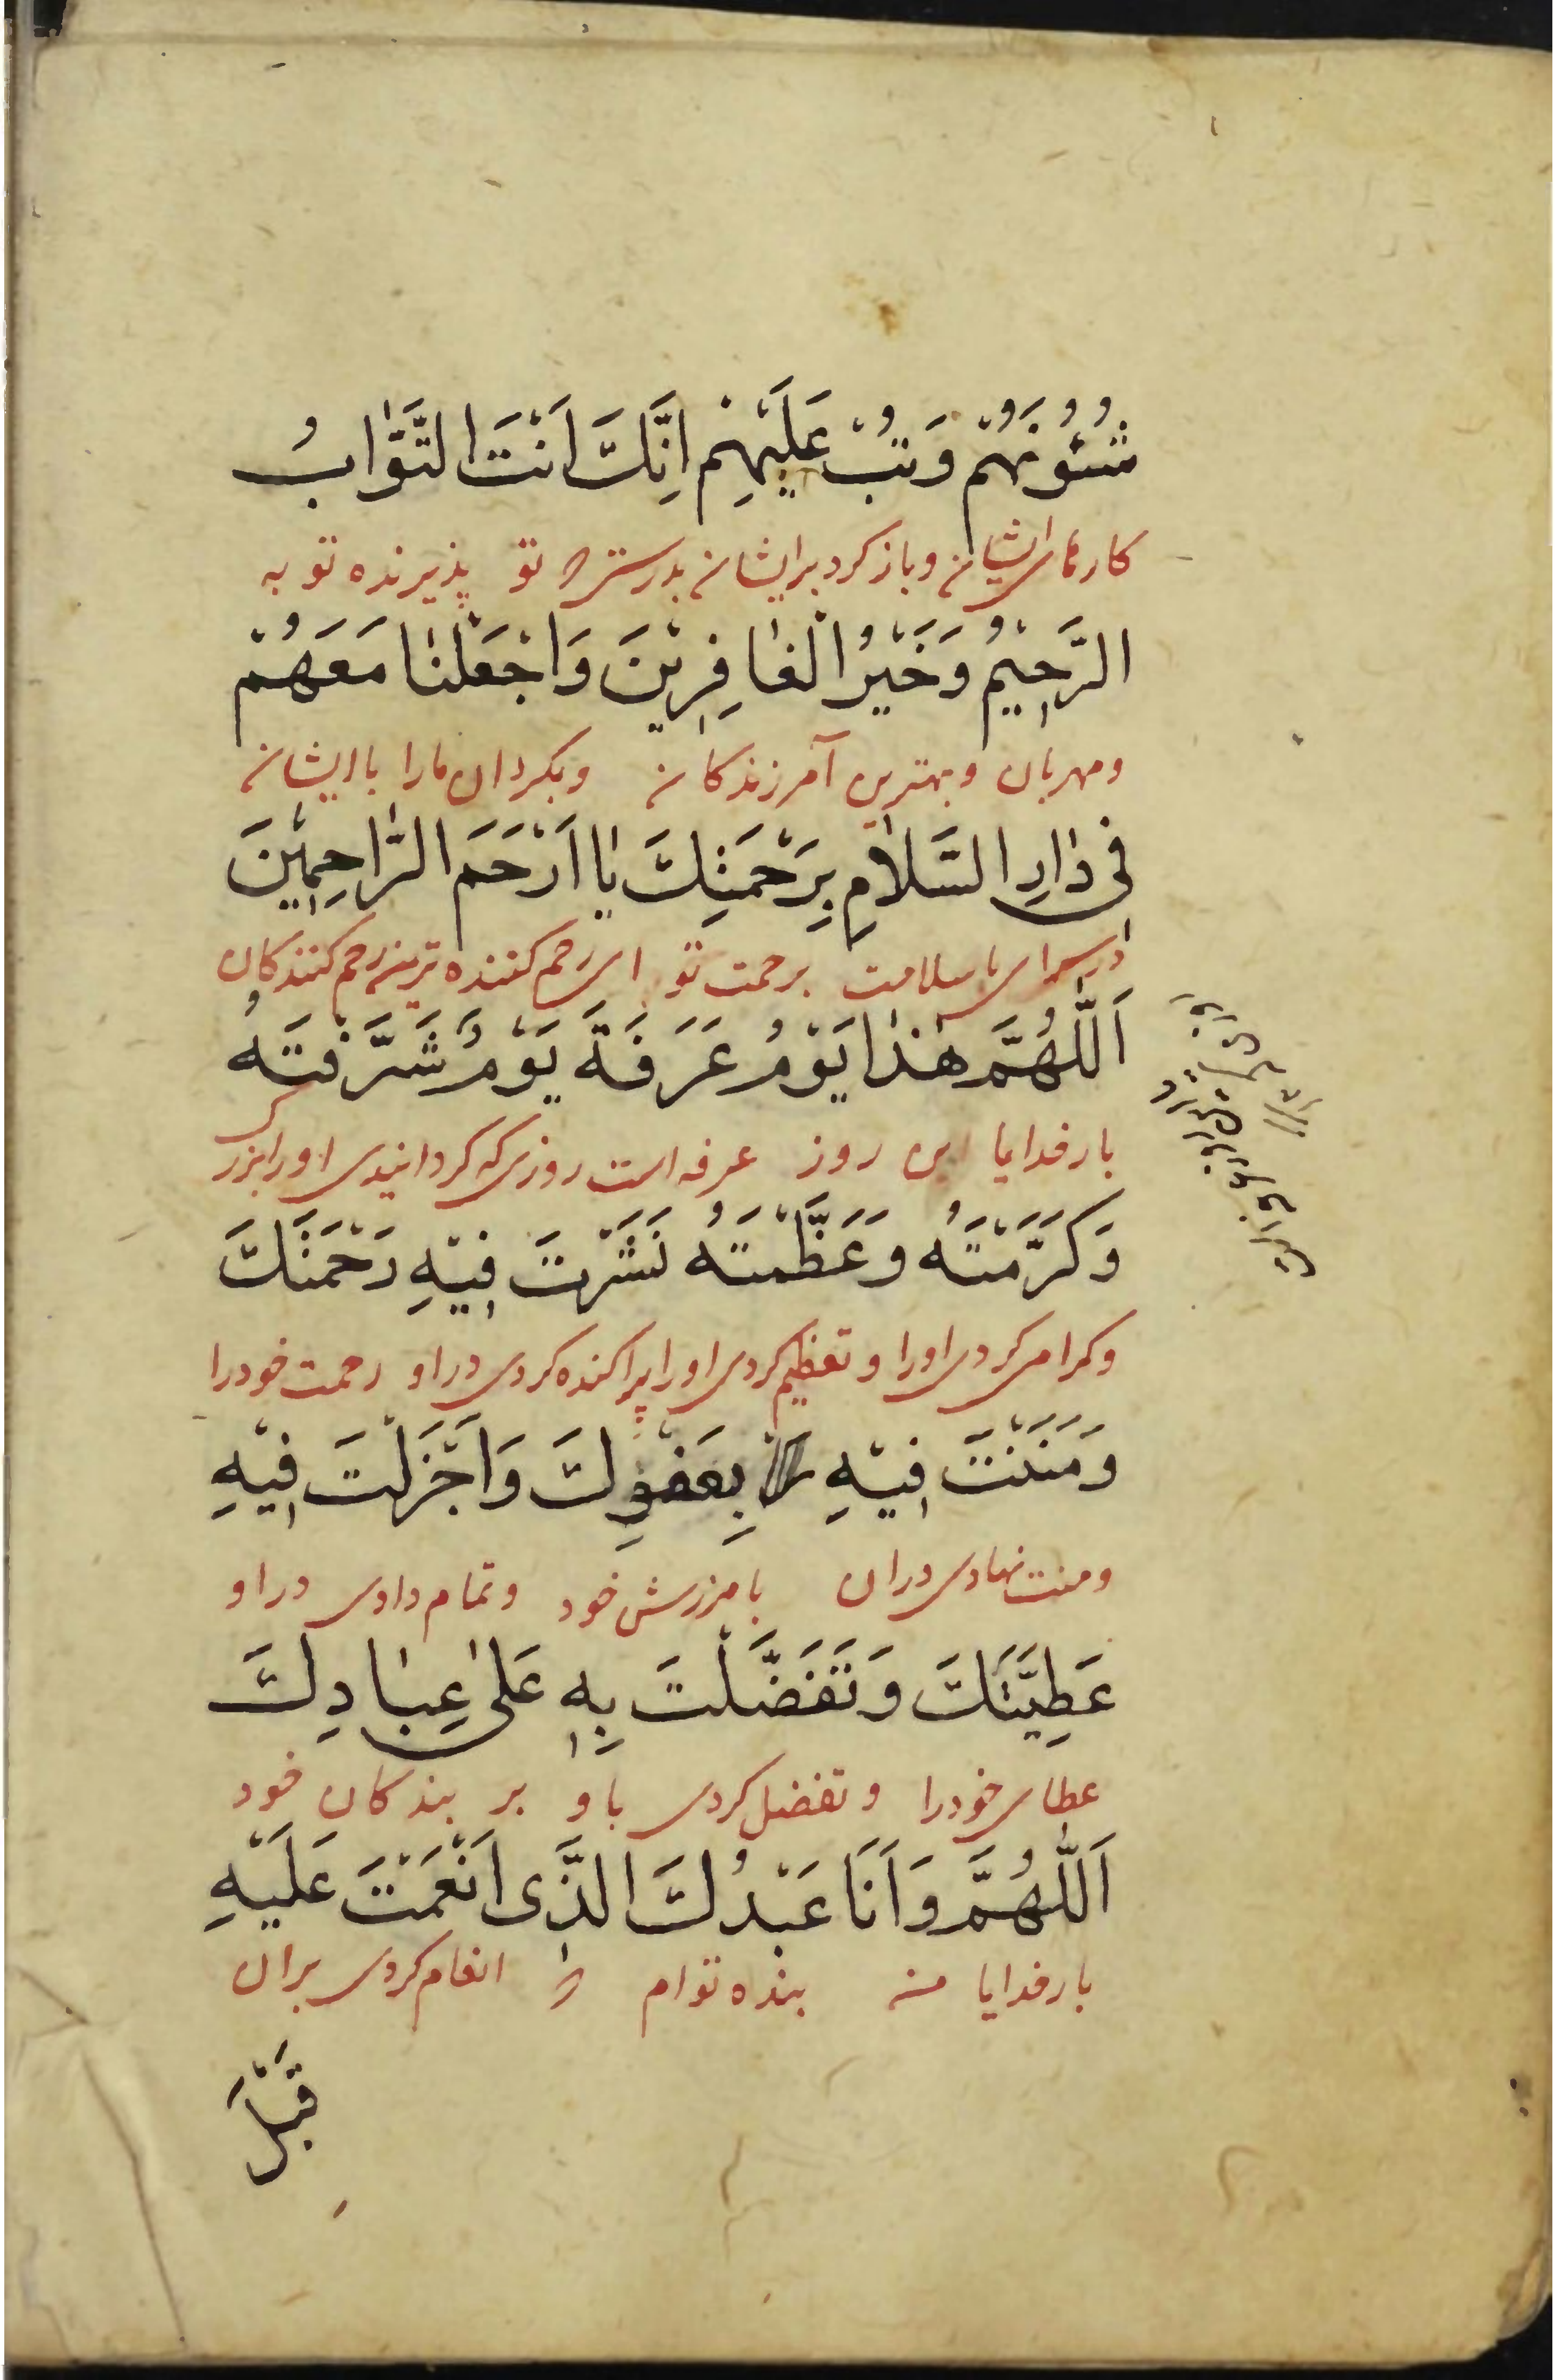 شُئُونَهُمْ وَتُبْ عَلَيْهِمْ اِنَّكَ اَنْتَ التَّوّٰابُ
كارهاى ايشان و بازكرد برايشان بدرستى كه تو پذيرنده توبه
الرَّحِيْمُ وَخَيْرُ الْغٰافِرِيْنَ وَاجْعَلْنٰا مَعَهُمْ
ومهربان وبهترين آمرزندكان وبكردان مارا با ايشان
فى دٰارِ السَّلاٰمِ بِرَحْمَتِكَ يٰا اَرْحَمَ الرّٰاحِمِيْنَ
در سراى با سلامت برحمت تو اى رحم كننده ترين رحم كنندكان
اَللّٰهُمَّ هٰذٰا يَوْمُ عَرَفَةَ يَوْمٌ شَرَّفْتَهُ
بارخدايا اين روز عرفه است روزى كه كردانيدى او را بزرك
وَكَرَّمْتَهُ وَعَظَّمْتَهُ نَشَرْتَ فِيْهِ رَحْمَتَكَ
وكرامى كردى اورا و تعظيم كردى اورا پراكنده كردى در او رحمت خودرا
وَمَنَنْتَ فِيْهِ بِعَفْوِكَ وَاَجْزَلْتَ فِيْهِ
ومنت نهادى دران بامرزش خود وتمام دادى در او
عَطِيَّتَكَ وَتَفَضَّلْتَ بِهِ عَلىٰ عِبٰادِكَ
عطاى خودرا و تفضل كردى باو بر بندكان خود
اَللّٰهُمَّ وَاَنَا عَبْدُكَ الَّذى اَنْعَمْتَ عَلَيْهِ
بارخدايا من بنده توام كه انعام كردى بران
قَبْلَ